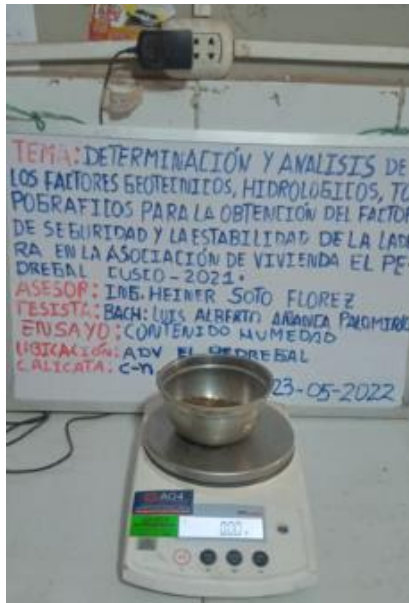 TEMA: DETERMINACIÓN Y ANALISIS DE
LOS FACTORES GEOTECNICOS, HIDROLOGICOS, TO
POGRAFICOS PARA LA OBTENCIÓN DEL FACTOR
DE SEGURIDAD Y LA ESTABILIDAD DE LA LADE
RA EN LA ASOCIACIÓN DE VIVIENDA EL PE-
DREGAL CUSCO-2021.
ASESOR: ING. HEINER SOTO FLOREZ
TESISTA: BACH: LUIS ALBERTO PALOMINO
ENSAYO: CONTENIDO HUMEDAD
UBICACIÓN: ADV EL PEDREGAL
CALICATA: C-
23-05-2022
AG4
0.00